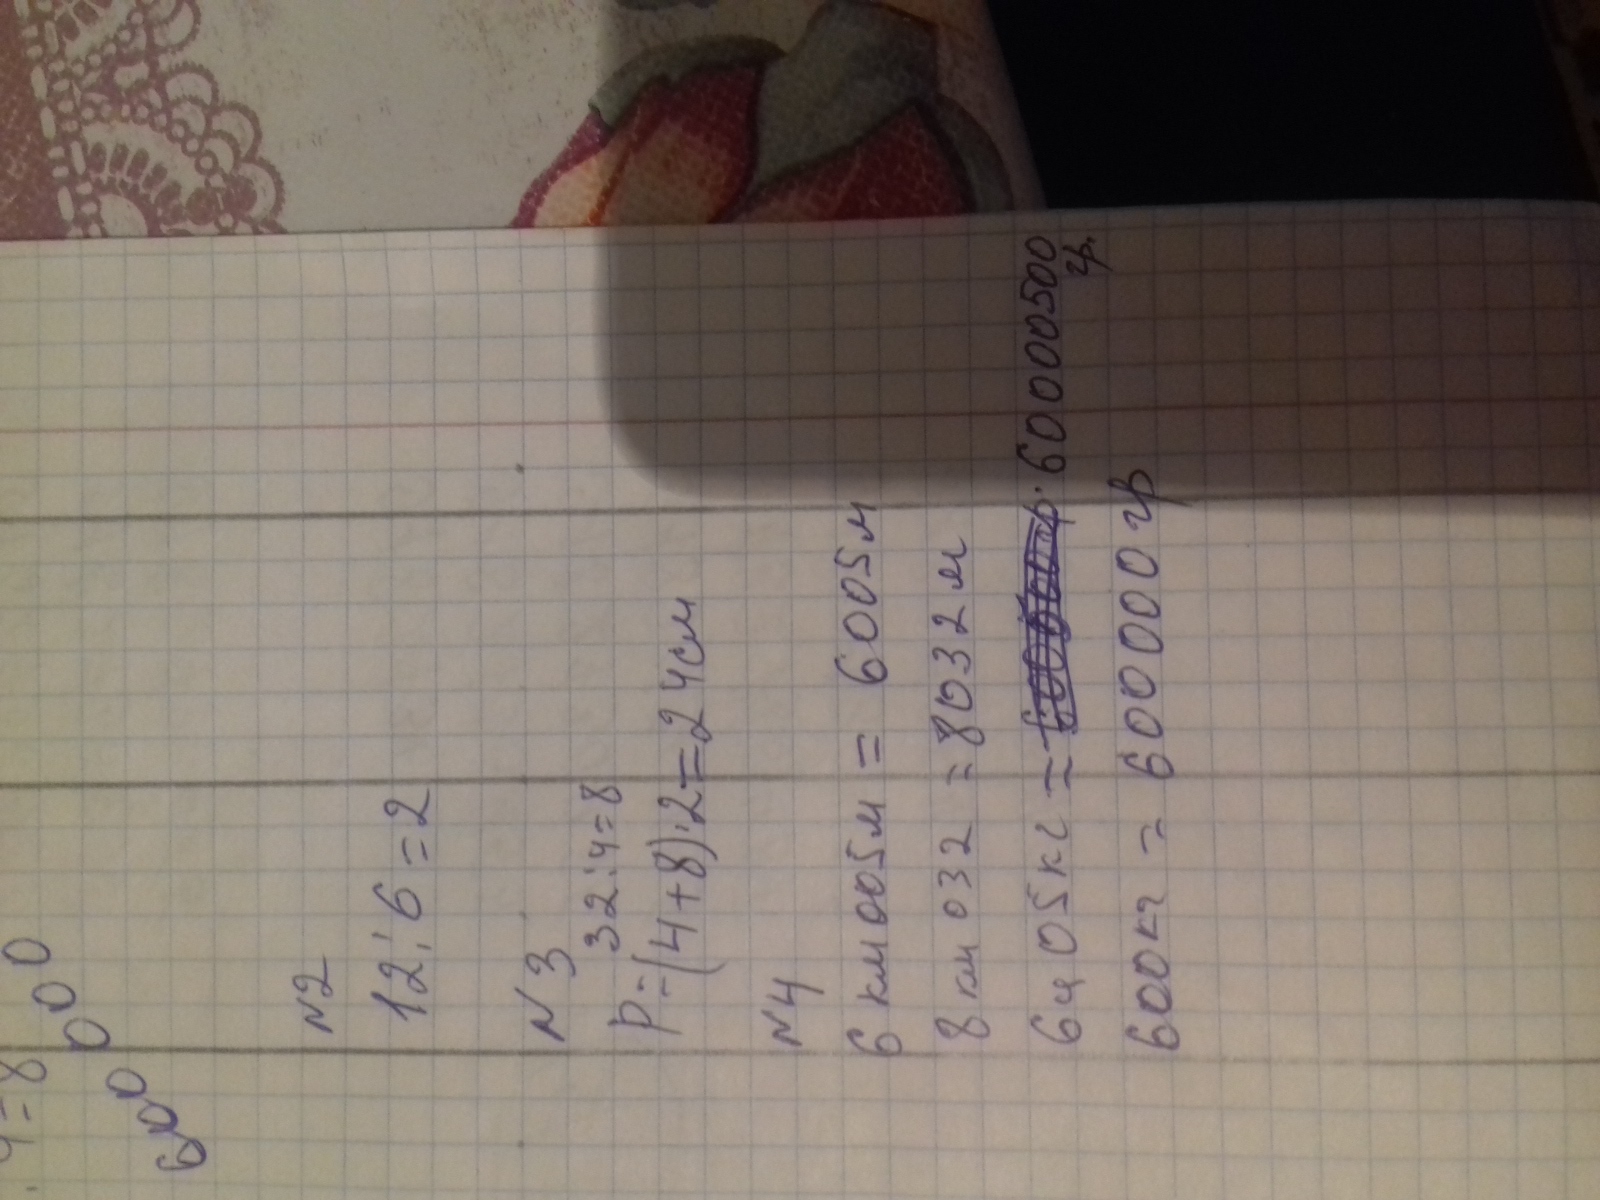 =8
0 0 0
600
N2
12:6=2
N3
32:4=8
P=(4+8)·2=24см
N4
6 км 005м = 6005м
8 км 032 = 8032 м
6ц 05кг = 60000500
гр.
600кг = 600000 гр